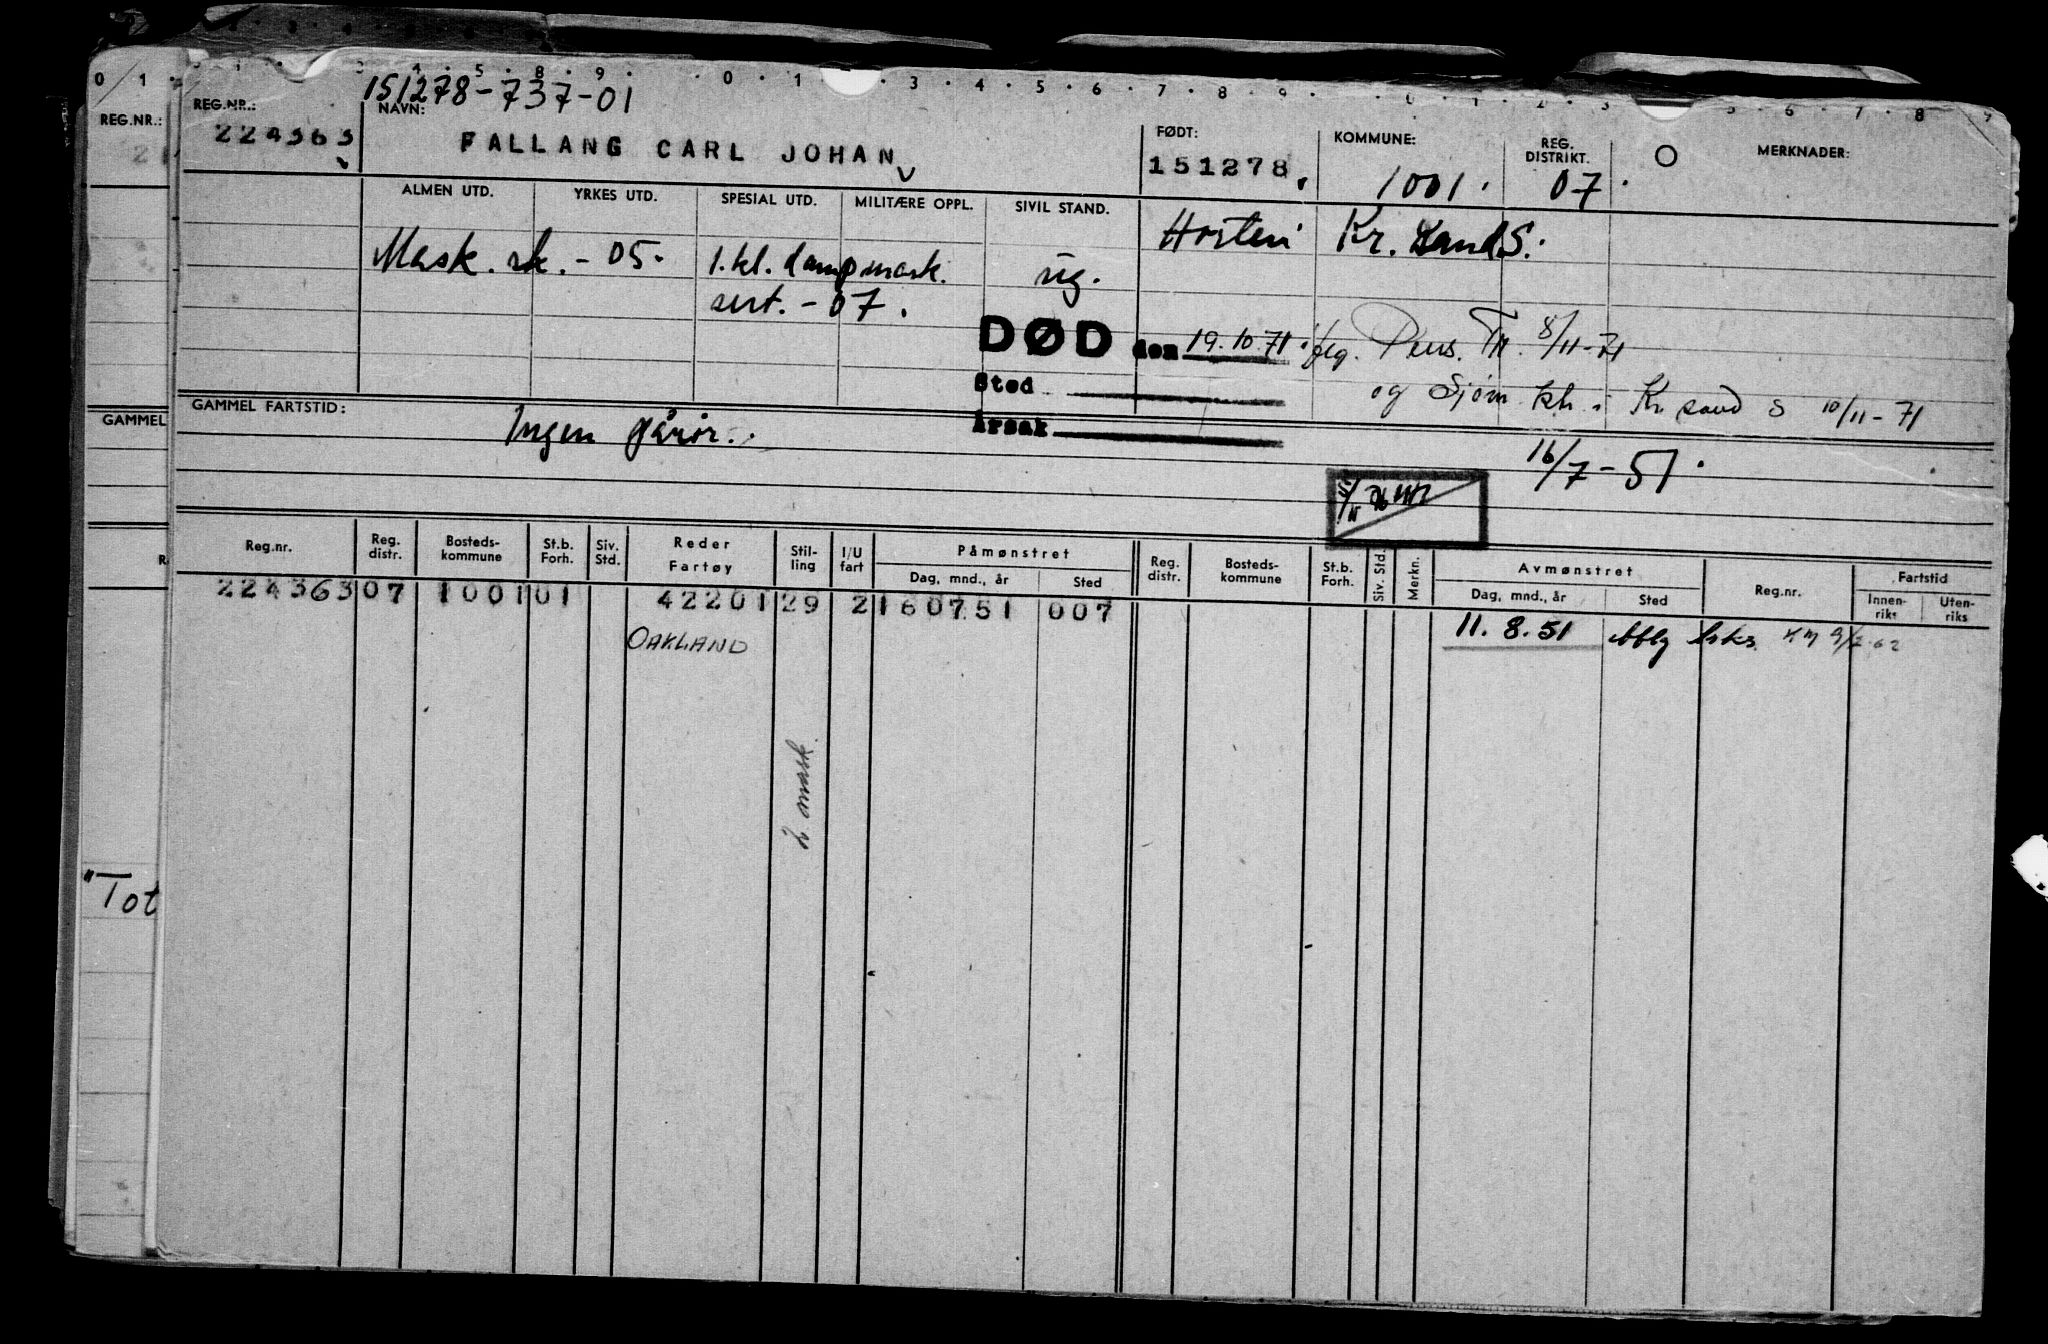 0 1 . 3 . 4 . 5 . 8 . 9 . 0 . 1 . 3 . 4 . 5 . 6 . 7 . 8 . 9 . 0 . 1 . 2 . 3 5 . 6 . 7 . 8 . 9
151278-737-01
REG.NR.: REG.NR.: NAVN: FØDT: KOMMUNE: REG. DISTRIKT. MERKNADER:
21 224363 FALLANG CARL JOHAN 151278. 1001. 07.
ALMEN UTD. YRKES UTD. SPESIAL UTD. MILITÆRE OPPL. SIVIL STAND.
Mask. sk. - 05. 1.kl. damp mask. ug. Horten Kr. Sand S.
sert. - 07.
DØD den 19.10.71. flg. Pens. Tr. 8/11-71
Sted og Sjøm. ktr. i Kr sand S 10/11-71
Årsak
GAMMEL GAMMEL FARTSTID: Ingen påror.
16/7-51.
Reg.nr. Reg. distr. Bosteds- kommune St.b. Forh. Siv. Std. Reder Fartøy Stil- ling I/U fart Påmønstret Dag, mnd., år Sted Reg. distr. Bosteds- kommune St.b. Forh. Siv. Std. Merkn. Avmønstret Dag, mnd., år Sted Reg.nr. Fartstid Innen- riks Uten- riks
R
224363 07 1001 01 42201 29 2 160751 007
OAKLAND 11.8.51
2 mask.
"Tot